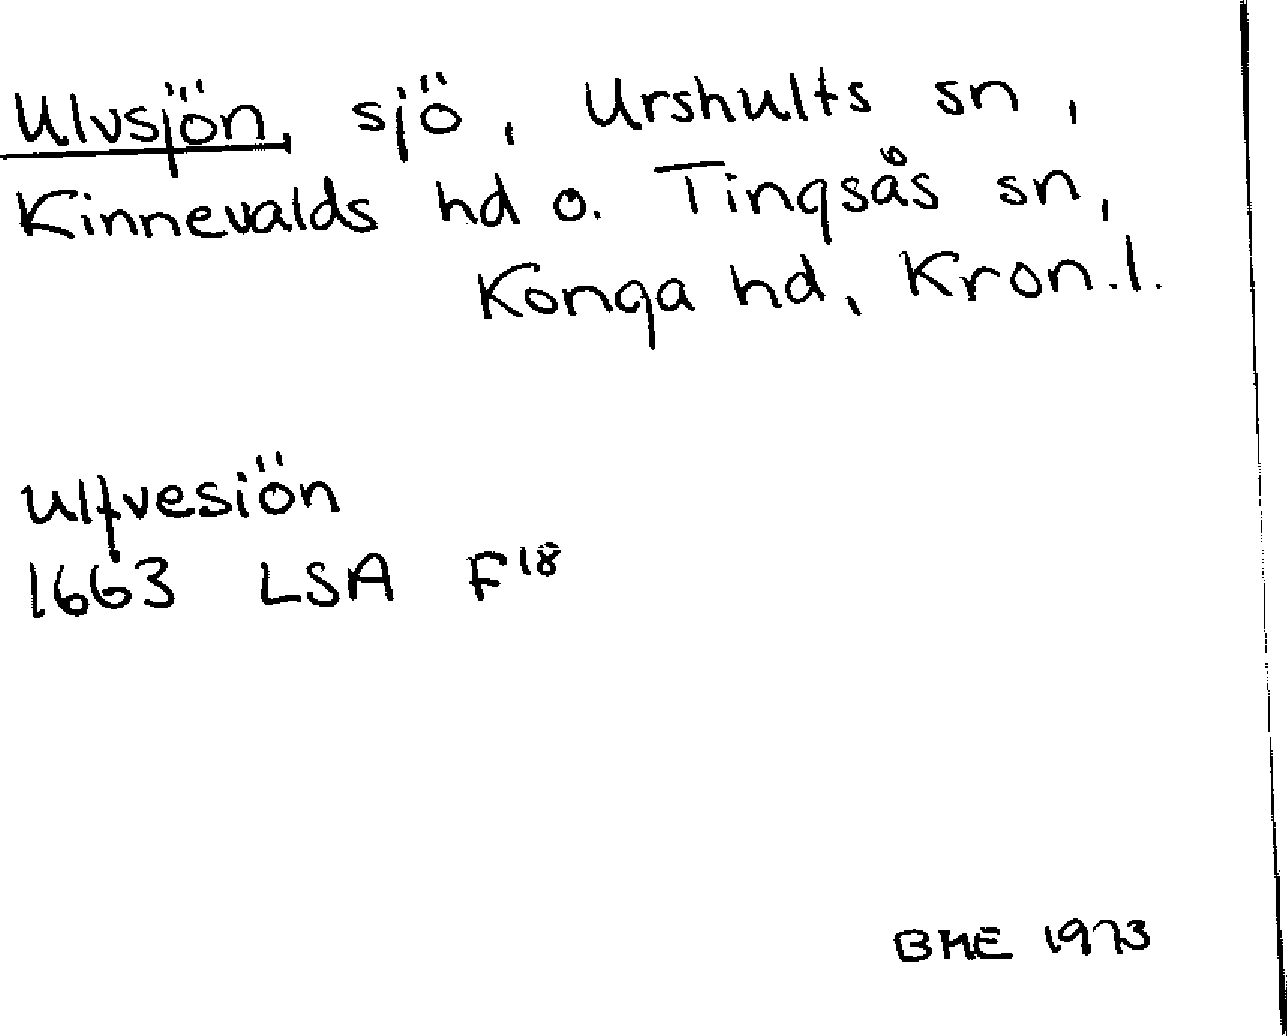 Ulvsjön, sjö, Urshults sn,
Kinnevalds hd o. Tingsås sn,
Konga hd, Kron.l.
Ulfvesiön
1663 LSA F18
BME 1973